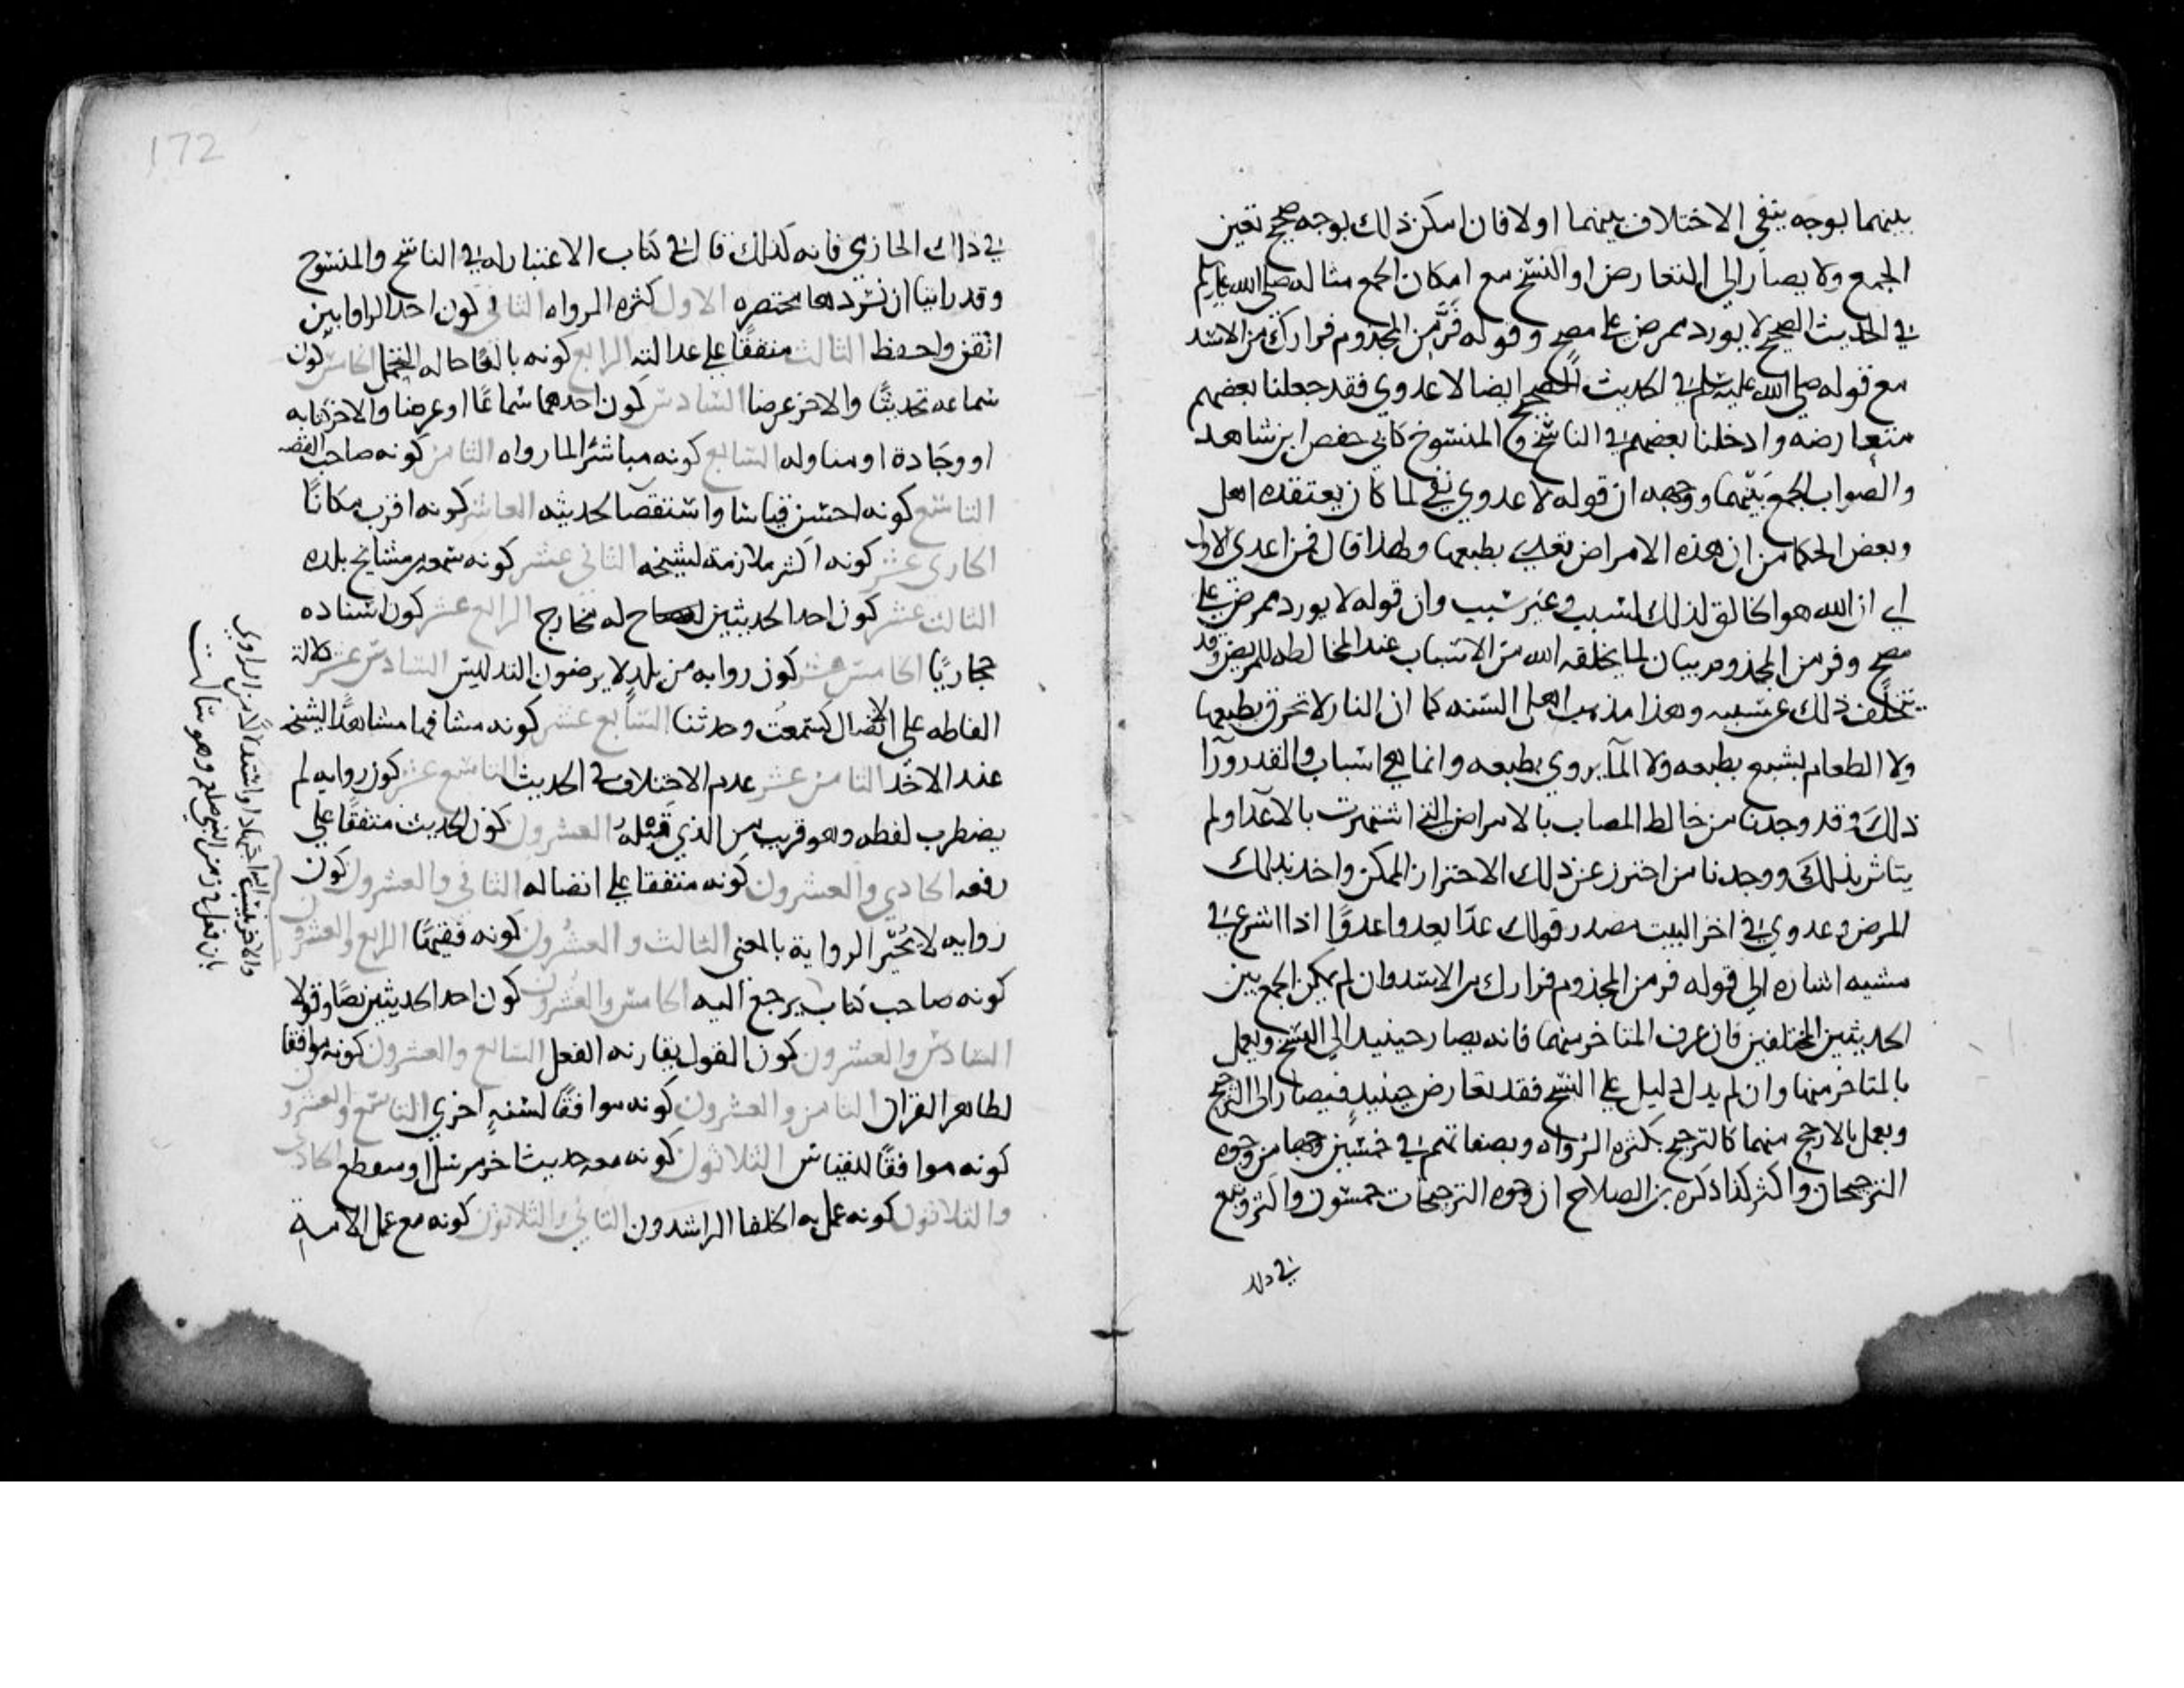 بينهما بوجه ينفي الاختلاف بينهما اولا فان امكن ذلك بوجه صحيح تعين
الجمع ولا يصار الى التعارض او النسخ مع امكان الجمع مثاله صلى الله عليه وسلم
في الحديث الصحيح لا يورد ممرض على مصح وقوله فر من المجذوم فرارك من الاسد
مع قوله صلى الله عليه وسلم في الحديث الصحيح ايضا لا عدوى فقد جعلنا بعضهم
متعارضه وادخلنا بعضهم في الناسخ والمنسوخ كابي حفص ابن شاهد
والصواب الجمع بينهما ووجهه ان قوله لا عدوي نفي لما كان يعتقده اهل
وبعض الحكما من ان هذه الامراض تعدي بطبعها ولهذا قال فمن اعدى الاول
اي ان الله هو الخالق لذلك لسبب وغير سبب وان قوله لا يورد ممرض على
مصح وفر من المجذوم بيان لما يخلقه الله من الاسباب عند المخالطه للمريض وقد
يتخلف ذلك عن سببه وهذا مذهب اهل السنه كما ان النار لا تحرق بطبعها
ولا الطعام يشبع بطبعه ولا المآ يروي بطبعه وانما هي اسباب والقدر ورآ
ذلك وقد وجدنا من خالط المصاب بالامراض التي اشتهرت بالاعدا ولم
يتاثر بذلك ووجدنا من احترز عن ذلك الاحتراز الممكن واخذ بذلك
المرض وعدوي في اخر البيت مصدر قولك عدا يعدوا عدوًا اذا اسرع في
مشيه اشاره الي قوله فر من المجذوم فرارك من الاسد وان لم يمكن الجمع بين
الحديثين المختلفين فان عرف المتاخر منهما فانه يصار حينيد الي النسخ ويعمل
بالمتاخر منهما وان لم يدل دليل علي النسخ فقد تعارض حينيد فيصار الى الترجيح
ويعمل بالارجح منهما كالترجيح بكثره الرواه وبصفاتهم في خمسين وجها من وجوه
الترجيحات واكثر كذا ذكره بن الصلاح ان وجوه الترجيحات خمسون واكثر وتبع
في ذلك
172
في ذلك الحازمي فانه كذلك قال في كتاب الاعتبار له في الناسخ والمنسوخ
وقد راينا ان نسردها مختصره الاول كثره الرواه الثاني كون احد الراويين
اتقن واحفظ الثالث متفقًا علي عدالته الرابع كونه بالغًا حاله التحمل الخامس كون
سماعه تحديثًا والاخر عرضا السادس كون احدهما سماعًا او عرضا والاخر كتابه
او وجادة او مناوله السابع كونه مباشرًا لما رواه الثامن كونه صاحب القصه
التاسع كونه احسن قياسا واستقصا لحديثه العاشر كونه اقرب مكانًا
الحادي عشر كونه اكثر ملازمة لشيخه الثاني عشر كونه سمعه من مشايخ بلده
الثالث عشر كون احد الحديثين له مخارج الرابع عشر كون اسناده
حجازيًا الخامس عشر كون روايه من بلد لا يرضون التدليس السادس عشر دلالة
الفاظه علي الاتصال كسمعت وحدثنا السابع عشر كونه مشافها مشاهدًا لشيخه
عند الاخذ الثامن عشر عدم الاختلاف في الحديث التاسع عشر كون روايه لم
يضطرب لفظه وهو قريب من الذي قبله العشرون كون الحديث متفقًا علي
رفعه الحادي والعشرون كونه متفقا علي اتصاله الثاني والعشرون كون
روايه لا يُجيز الرواية بالمعني الثالث والعشرون كونه فقيهًا الرابع والعشرون
كونه صاحب كتاب يرجع اليه الخامس والعشرون كون احد الحديثين نصًا وقولا
السادس والعشرون كون القول يقارنه الفعل السابع والعشرون كونه موافقا
لظاهر القران الثامن والعشرون كونه موافقًا لسنهٍ اخري التاسع والعشرون
كونه موافقًا للقياس الثلاثون كونه معه حديث اخر مرسل او منقطع الحادي
والثلاثون كونه عمل به الخلفا الراشدون الثاني والثلاثون كونه مع عمل الامه
والاخر ينسب اليه اجتهادا واستدلالا من الراوي
بان فعل في زمن النبي صلعم وهو ساكت